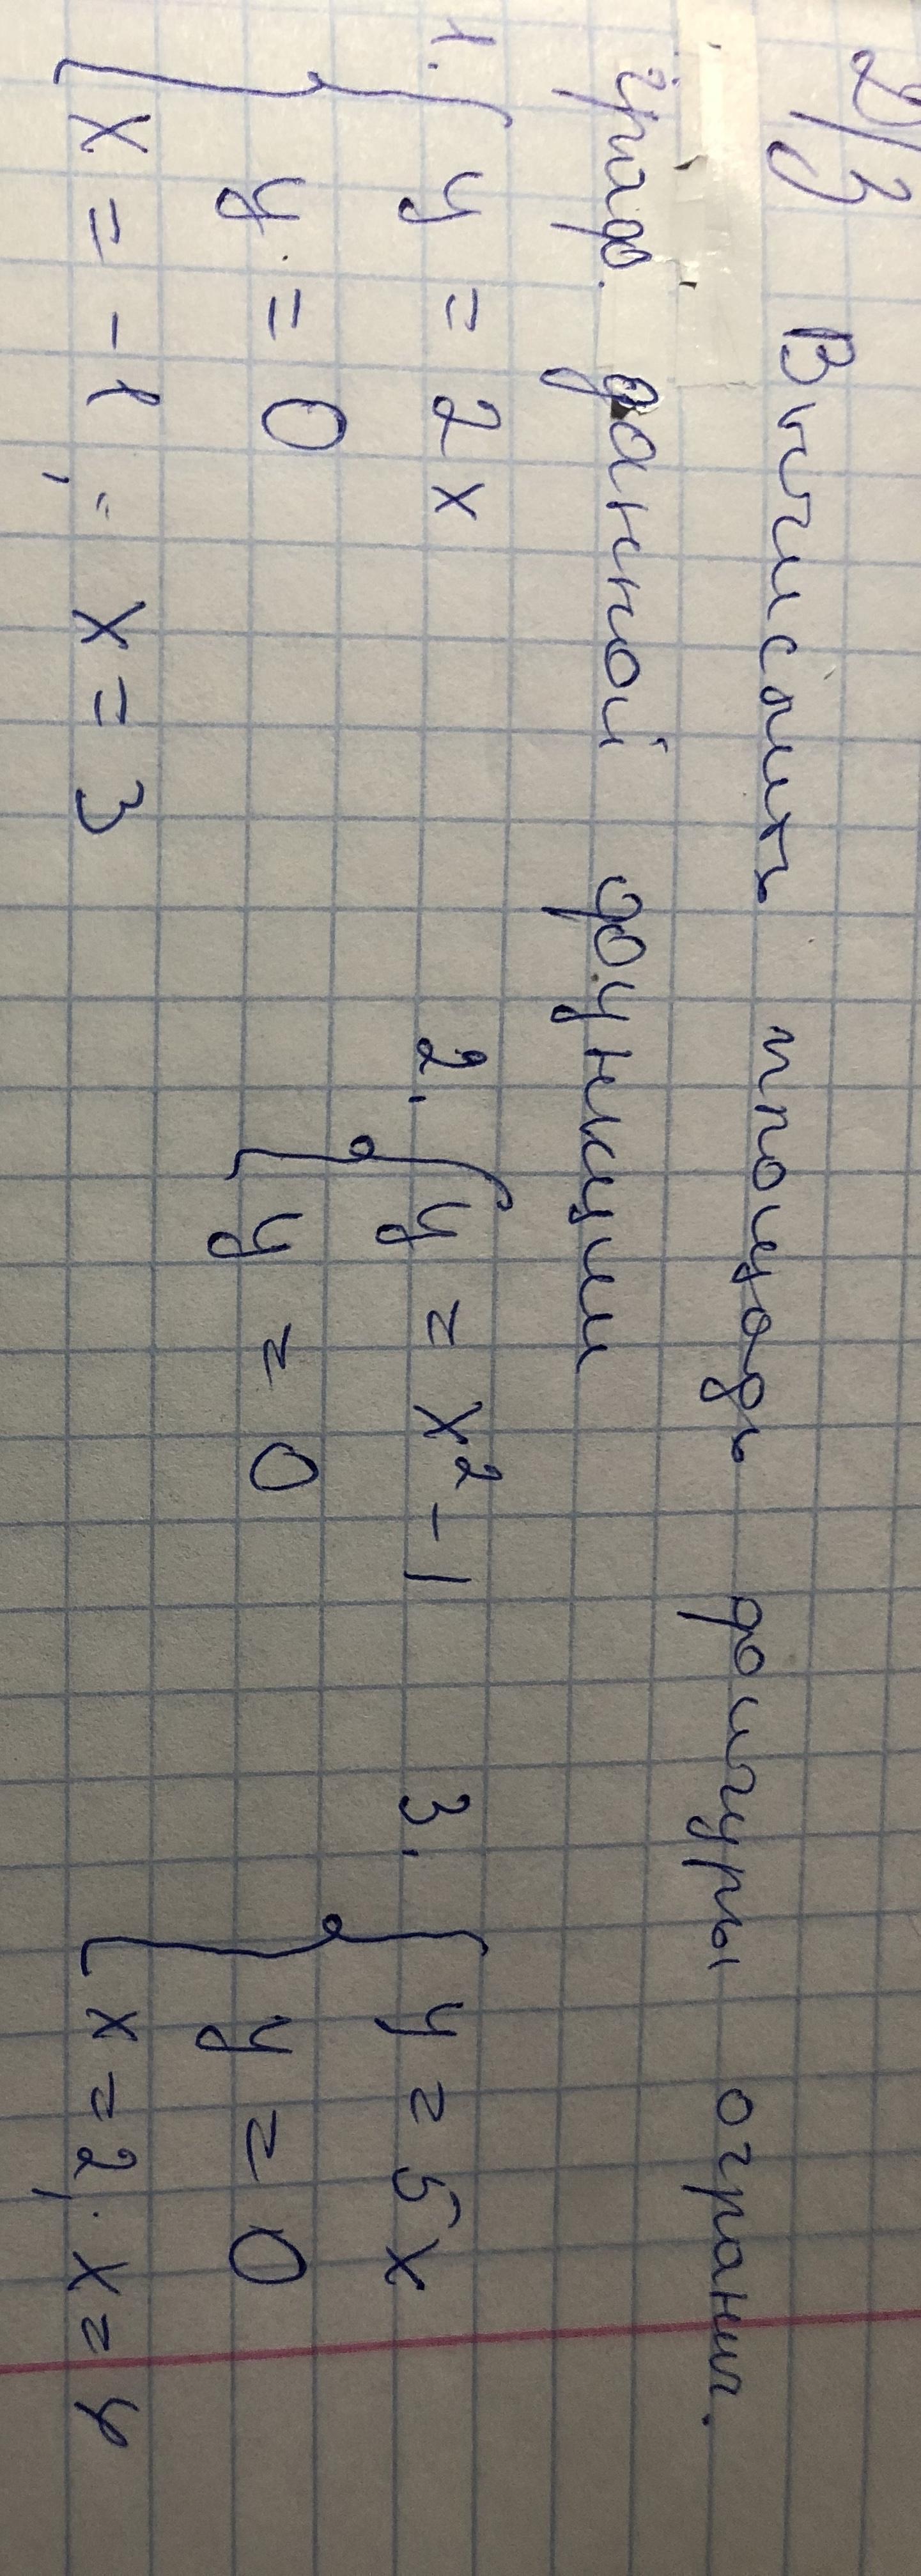 Д/З Вычислить площадь фигуры огранич.
граф. данной функции
1. { y = 2x
y = 0
x = -1; x = 3
2. { y = x² - 1
y = 0
3. { y = 5x
y = 0
x = 2; x = 4